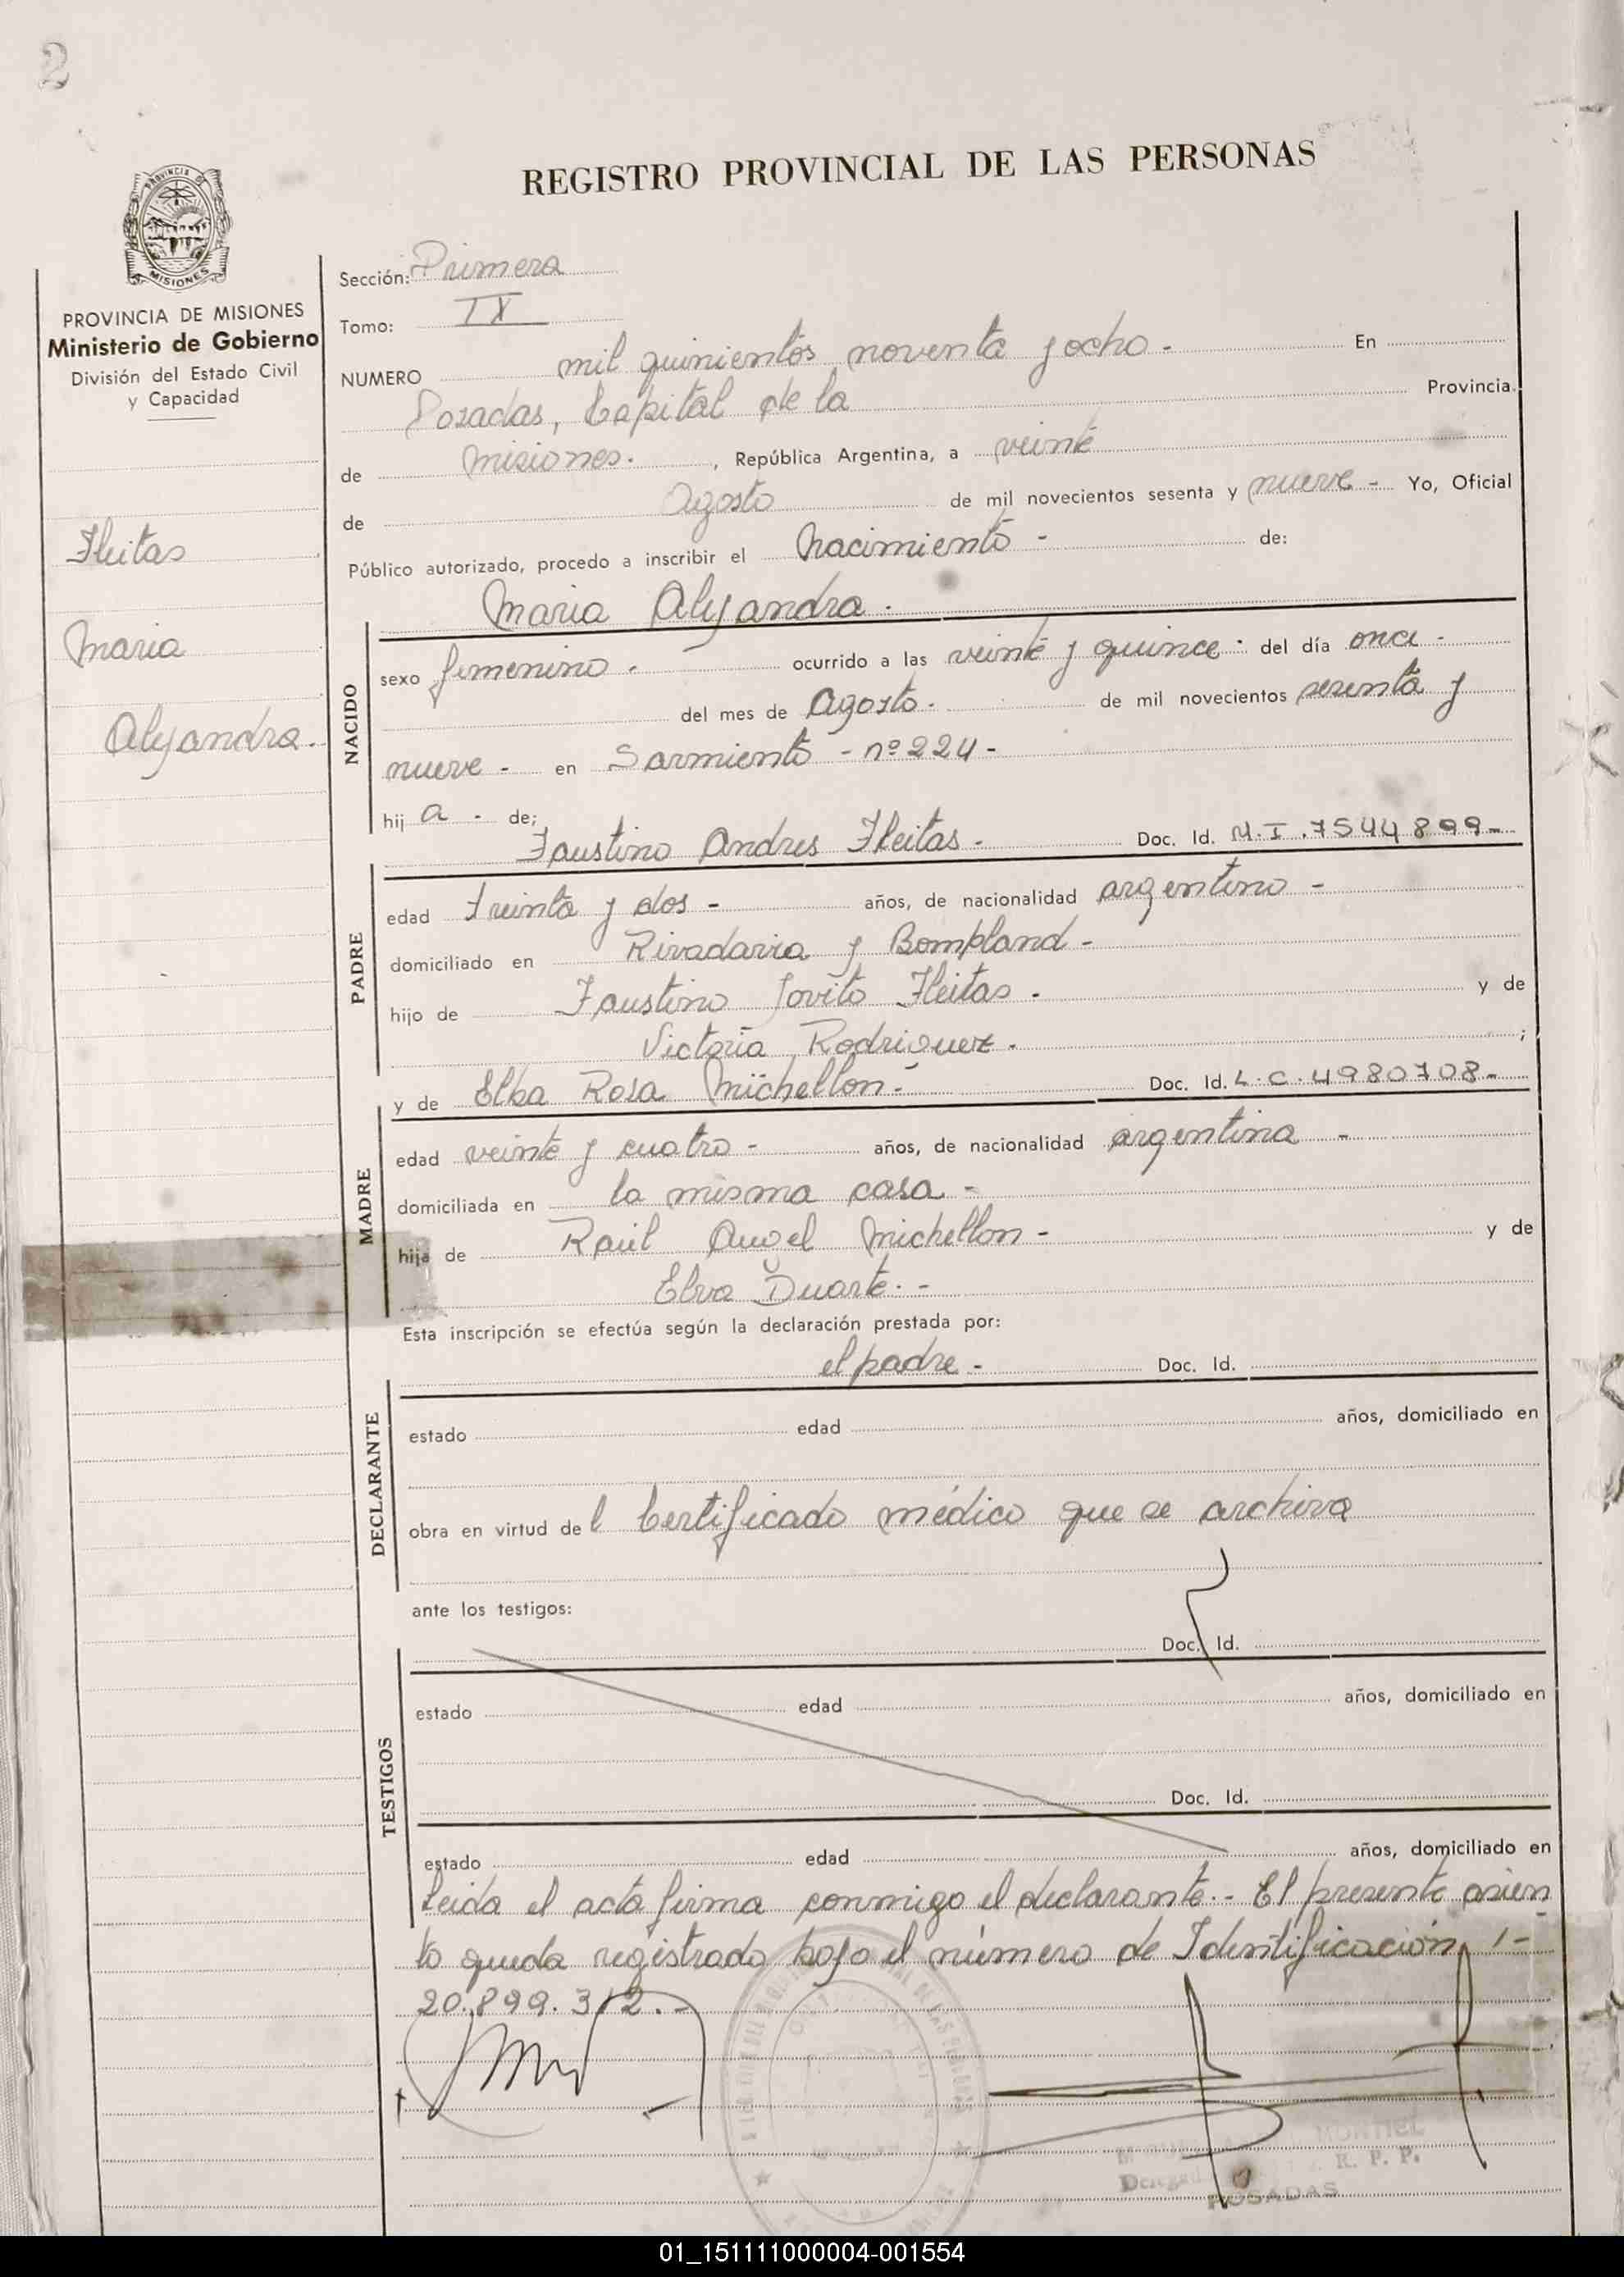 2
REGISTRO PROVINCIAL DE LAS PERSONAS
PROVINCIA DE MISIONES
Ministerio de Gobierno
División del Estado Civil
y Capacidad
Fleitas
Maria
Alejandra.
Sección: Primera
Tomo: IX
NUMERO mil quinientos noventa y ocho - En
Posadas, Capital de la Provincia
de Misiones. , República Argentina, a veinte
de Agosto de mil novecientos sesenta y nueve - Yo, Oficial
Público autorizado, procedo a inscribir el Nacimiento - de:
Maria Alejandra.
NACIDO
sexo femenino. ocurrido a las veinte y quince - del día once -
del mes de Agosto. de mil novecientos sesenta y
nueve - en Sarmiento - nº 224 -
hij a - de;
Faustino Andres Fleitas - Doc. Id. M.I. 7544899-
PADRE
edad treinta y dos - años, de nacionalidad argentino -
domiciliado en Rivadavia y Bompland -
hijo de Faustino Jovito Fleitas - y de
Victoria Rodriguez. ;
y de Elba Rosa Michellon - Doc. Id. L.C. 4980708-
MADRE
edad veinte y cuatro - años, de nacionalidad argentina -
domiciliada en la misma casa -
hija de Raúl Angel Michellon - y de
Elva Duarte. -
Esta inscripción se efectúa según la declaración prestada por:
el padre - Doc. Id.
DECLARANTE
estado edad años, domiciliado en
obra en virtud de l Certificado médico que se archiva
ante los testigos:
Doc. Id.
TESTIGOS
estado edad años, domiciliado en
Doc. Id.
estado edad años, domiciliado en
Leida el acta firma conmigo el declarante. - El presente asien
to queda registrado bajo el número de Identificación 1-
20.899.312. -
MONTIEL
R. P. P.
POSADAS
01_151111000004-001554